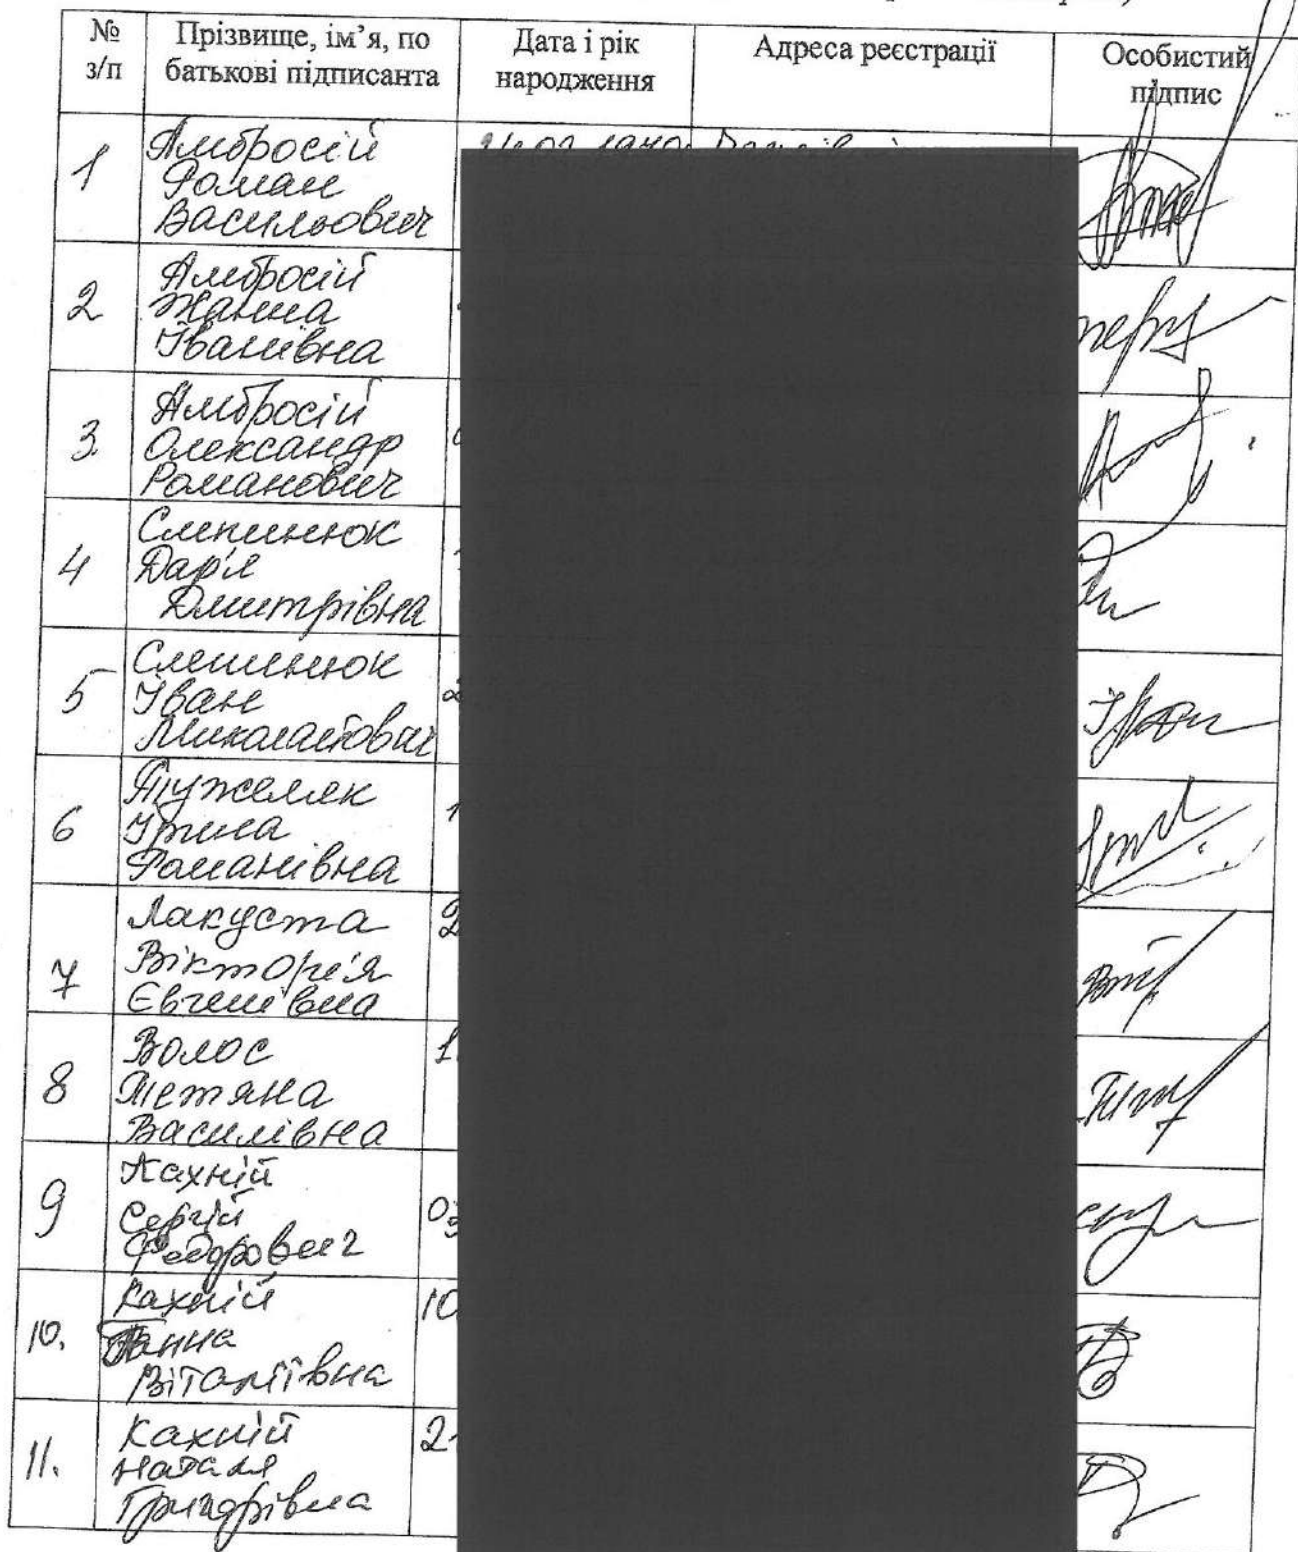 № з/п
Прізвище, ім’я, по батькові підписанта
Дата і рік народження
Адреса реєстрації
Особистий підпис
1
Амбросій
Роман
Васильович
2
Амбросій
Жанна
Іванівна
3.
Амбросій
Олександр
Романович
4
Слепенюк
Дар'я
Дмитрівна
5
Іван
Миколайович
6
Тужеляк
Ірина
Романівна
7
Лакуста
Вікторія
Євгенівна
8
Волос
Тетяна
Василівна
9
Кахній
Сергій
Федорович
10.
Кахній
Ганна
Віталіївна
11.
Кахній
Наталя
Григорівна